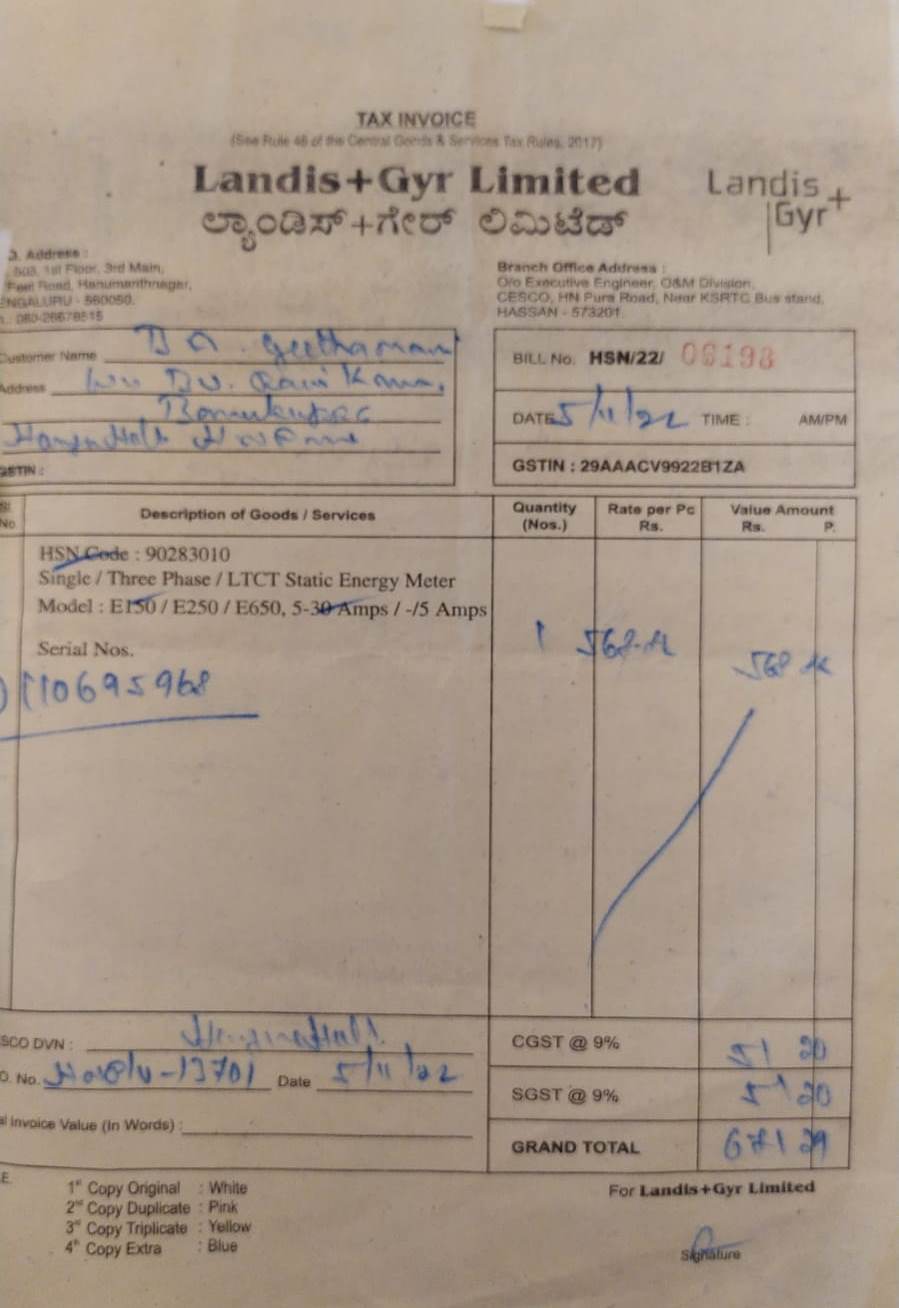 TAX INVOICE
(See Rule 46 of the Central Goods & Services Tax Rules, 2017)
Landis+Gyr Limited
ಲ್ಯಾಂಡಿಸ್+ಗೇರ್ ಲಿಮಿಟೆಡ್
Landis
Gyr+
Address :
1st Floor, 3rd Main,
Road, Hanumanthnagar,
Branch Office Address :
O/o Executive Engineer, O&M Division,
CESCO, HN Pura Road, Near KSRTC Bus stand,
HASSAN - 573201
Customer Name
Address
GSTIN :
BILL No. HSN/22/ 06193
DATE 5/11/22 TIME : AM/PM
GSTIN : 29AAACV9922B1ZA
Sl. No. Description of Goods / Services Quantity (Nos.) Rate per Pc Rs. Value Amount Rs. P.
HSN Code : 90283010
Single / Three Phase / LTCT Static Energy Meter
Model : E150 / E250 / E650, 5-30 Amps / -/5 Amps
Serial Nos. 1
110695968
DVN :
No. Date 5/11/22
Invoice Value (In Words) :
CGST @ 9% 51 20
SGST @ 9% 51 20
GRAND TOTAL
1st Copy Original : White
2nd Copy Duplicate : Pink
3rd Copy Triplicate : Yellow
4th Copy Extra : Blue
For Landis+Gyr Limited
Signature